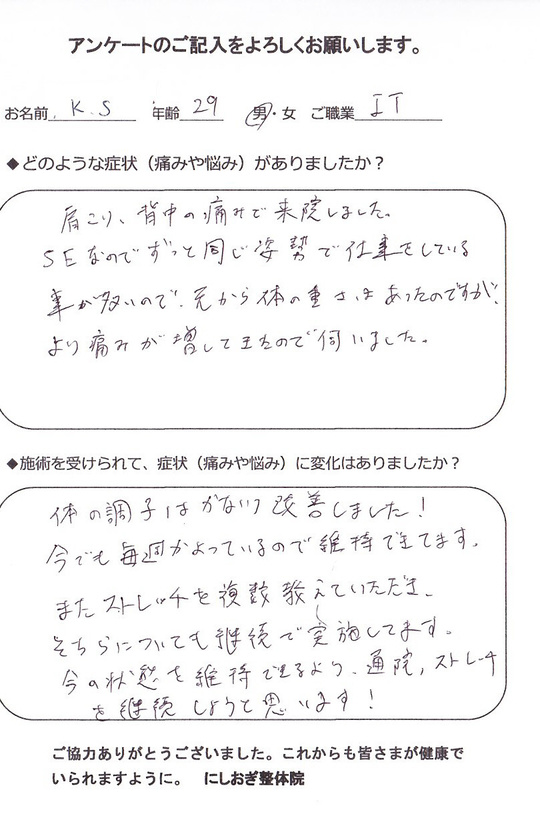 アンケートのご記入をよろしくお願いします。
お名前 K.S 年齢 29 男・女 ご職業 IT
◆どのような症状（痛みや悩み）がありましたか？
肩こり、背中の痛みで来院しました。
SEなのでずっと同じ姿勢で仕事をしている
事が多いので、元から体の重さはあったのですが、
より痛みが増してきたので伺いました。
◆施術を受けられて、症状（痛みや悩み）に変化はありましたか？
体の調子はかなり改善しました！
今でも毎週かよっているので維持できてます。
またストレッチを複数教えていただき、
そちらについても継続で実施してます。
今の状態を維持できるよう、通院、ストレッチ
を継続しようと思います！
ご協力ありがとうございました。これからも皆さまが健康で
いられますように。 にしおぎ整体院